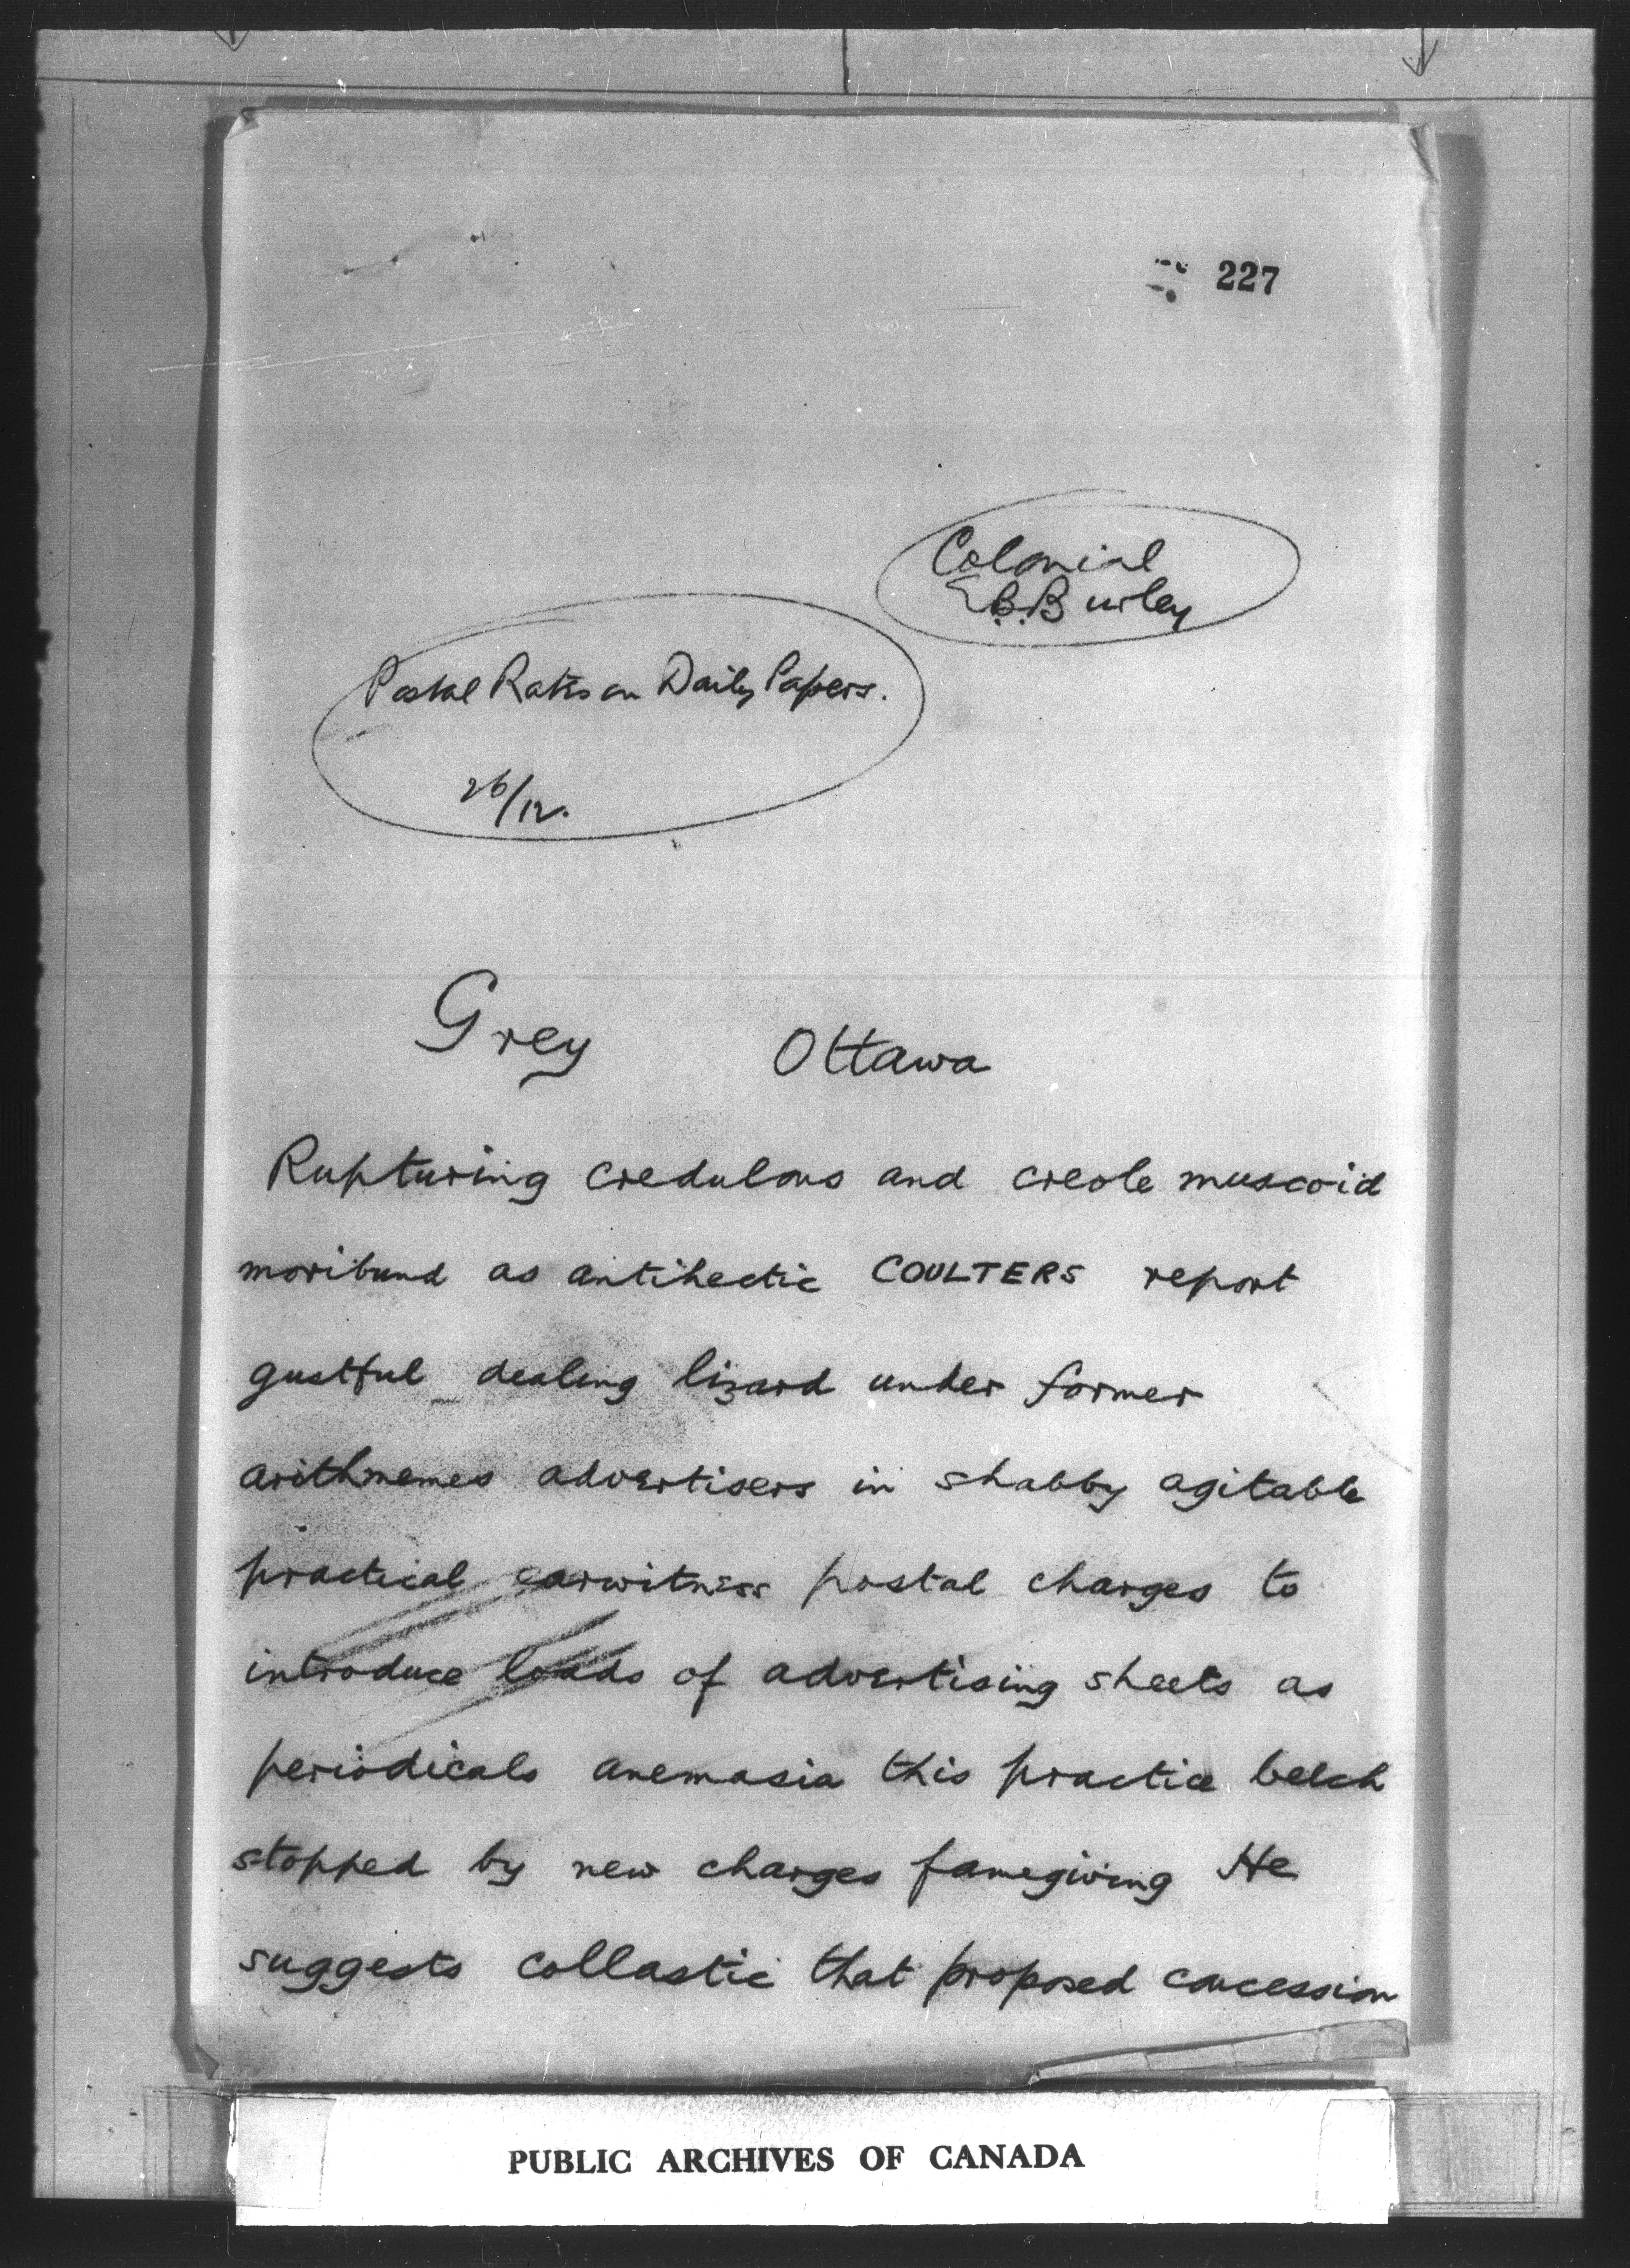 227
Colonial
E.B. Burley
Postal Rates on Daily Papers.
26/12.
Grey Ottawa
Rupturing credulous and creole muscoid
moribund as antihectic COULTERS report
gustful dealing lizard under former
arithmemes advertisers in shabby agitable
practical earwitness postal charges to
introduce loads of advertising sheets as
periodicals anemasia this practice belch
stopped by new charges famegiving He
suggests collastic that proposed concession
PUBLIC ARCHIVES OF CANADA